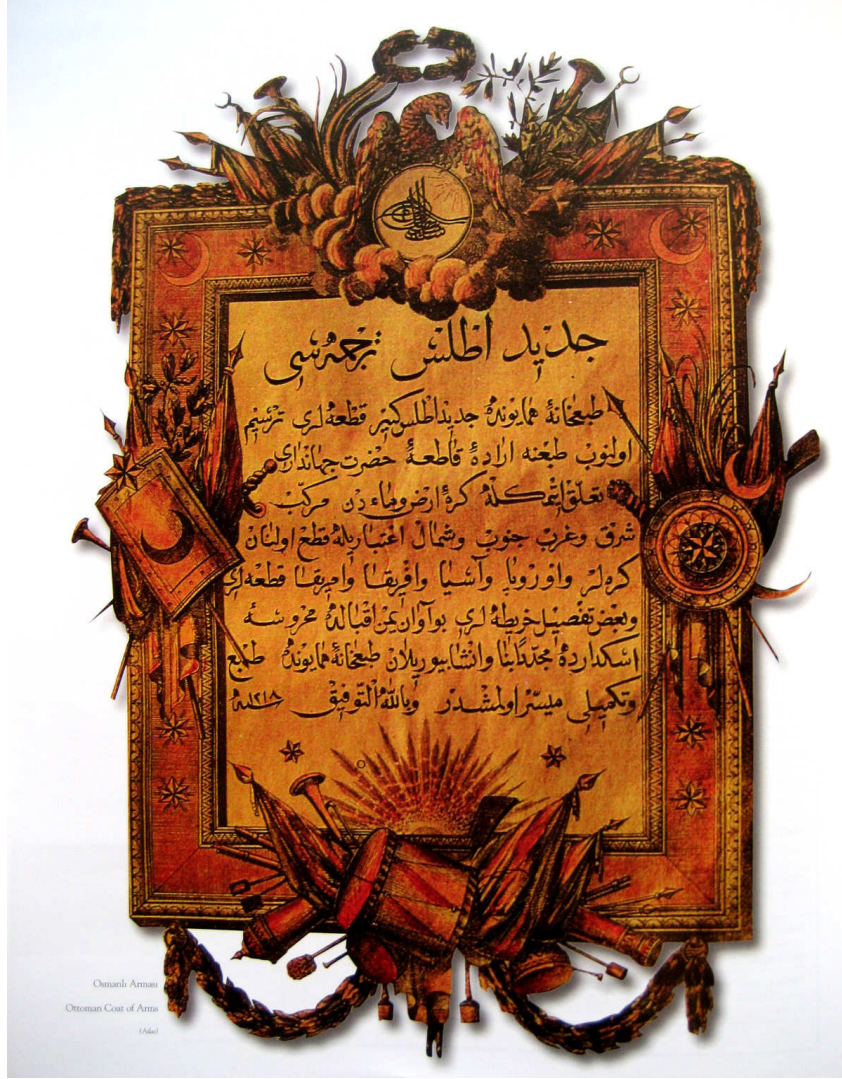 جديد اطلس ترجمه‌سى
طبعخانۀ همايونده جديد اطلس كبير قطعه‌لرى ترسيم
اولنوب طبعنه ارادۀ قاطعۀ حضرت جهاندارى
تعلق ايتمكله كرۀ ارض وماءدن مركب
شرق وغرب جنوب وشمال اعتباريله قطع اولنان
كره‌لر واوروپا وآسيا وافريقا وامريقا قطعه‌لرى
وبعض تفصيل خريطه‌لرى بو آوان يمن اقبالده محروسۀ
اسكدارده مجددا بنا وانشا بيوريلان طبعخانۀ همايونده طبع
وتكميلى ميسر اولمشدر وبالله التوفيق سنه ١٢١٨
Osmanlı Arması
Ottoman Coat of Arms
(Atlas)